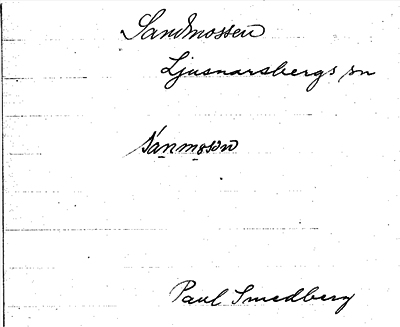 Sandmossen
Ljusnarsbergs sn
sánmosən
Paul Smedberg